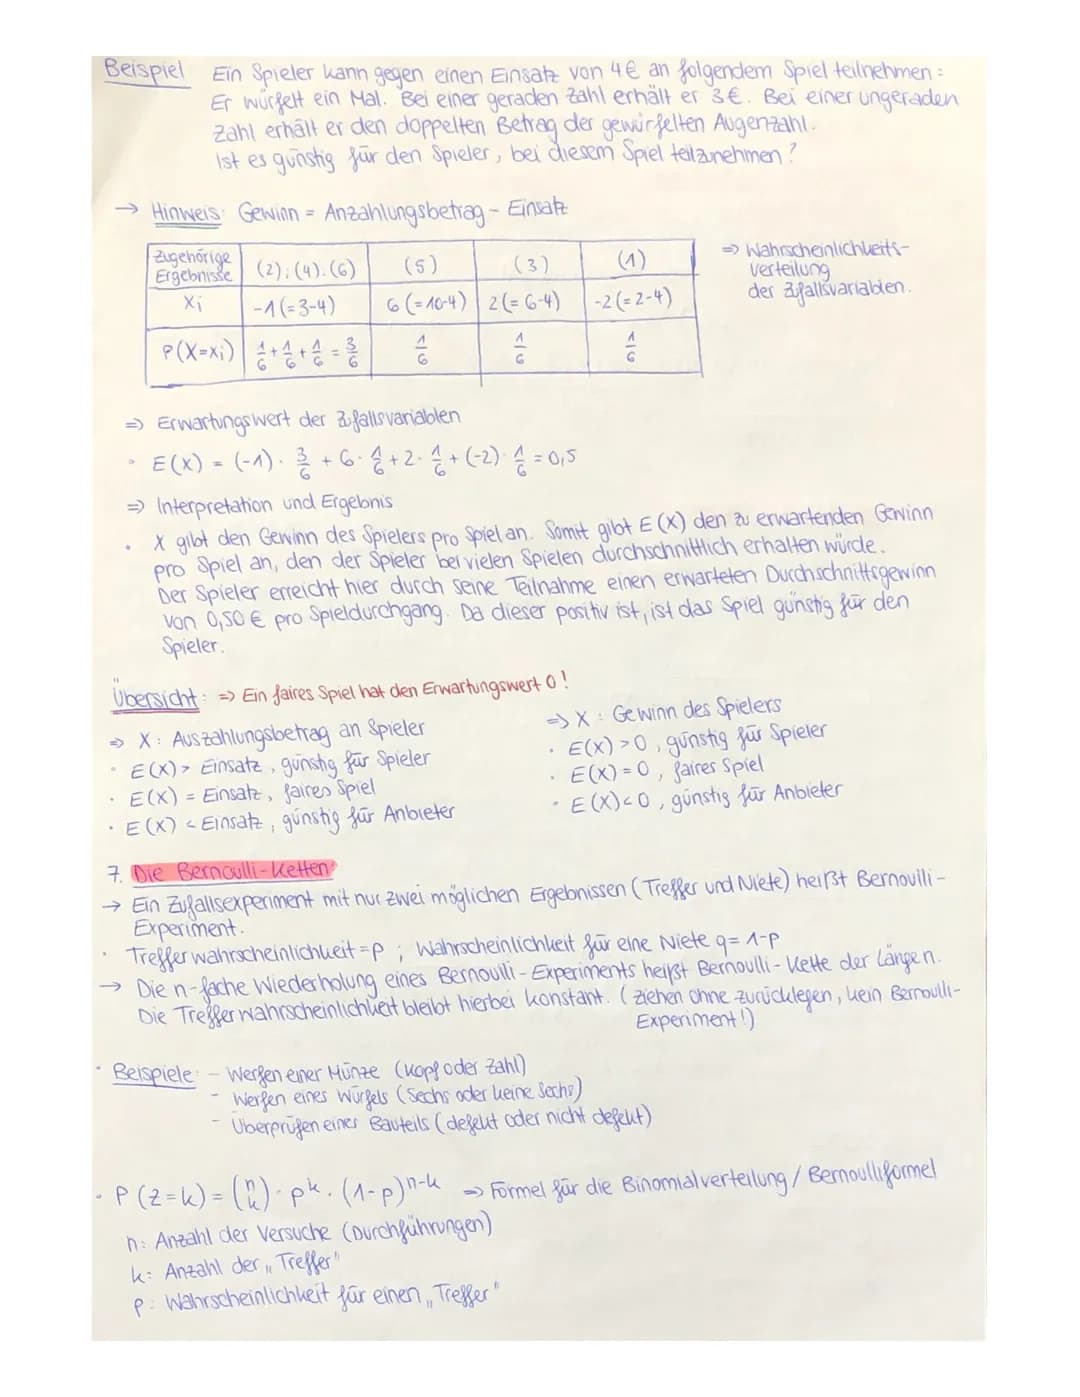 Beispiel Ein Spieler kann gegen einen Einsatz von 4€ an folgendem Spiel teilnehmen:
Er würfelt ein Mal. Bei einer geraden Zahl erhält er 3€. Bei einer ungeraden
Zahl erhält er den doppelten Betrag der gewürfelten Augenzahl.
Ist es günstig für den Spieler, bei diesem Spiel teilzunehmen?
→ Hinweis: Gewinn = Anzahlungsbetrag - Einsatz
Zugehörige Ergebnisse (2);(4);(6) (5) (3) (1)
xi -1(=3-4) 6(=10-4) 2(=6-4) -2(=2-4)
P(X=xi) 1/6 + 1/6 + 1/6 = 3/6 1/6 1/6 1/6
=> Wahrscheinlichkeits-
verteilung
der Zufallsvariablen.
=> Erwartungswert der Zufallsvariablen
• E(X) = (-1) · 3/6 + 6 · 1/6 + 2 · 1/6 + (-2) · 1/6 = 0,5
=> Interpretation und Ergebnis
• X gibt den Gewinn des Spielers pro Spiel an. Somit gibt E(X) den zu erwartenden Gewinn
pro Spiel an, den der Spieler bei vielen Spielen durchschnittlich erhalten würde.
Der Spieler erreicht hier durch seine Teilnahme einen erwarteten Durchschnittsgewinn
von 0,50€ pro Spieldurchgang. Da dieser positiv ist, ist das Spiel günstig für den
Spieler.
Übersicht: => Ein faires Spiel hat den Erwartungswert 0!
=> X: Auszahlungsbetrag an Spieler
• E(X) > Einsatz, günstig für Spieler
• E(X) = Einsatz, faires Spiel
• E(X) < Einsatz, günstig für Anbieter
=> X: Gewinn des Spielers
• E(X) > 0, günstig für Spieler
• E(X) = 0, faires Spiel
• E(X) < 0, günstig für Anbieter
7. Die Bernoulli-Ketten
→ Ein Zufallsexperiment mit nur zwei möglichen Ergebnissen (Treffer und Niete) heißt Bernoulli-
Experiment.
• Trefferwahrscheinlichkeit = p ; Wahrscheinlichkeit für eine Niete q = 1-p
→ Die n-fache Wiederholung eines Bernoulli-Experiments heißt Bernoulli-Kette der Länge n.
Die Trefferwahrscheinlichkeit bleibt hierbei konstant. (ziehen ohne zurücklegen, kein Bernoulli-
Experiment!)
• Beispiele: - Werfen einer Münze (Kopf oder Zahl)
- Werfen eines Würfels (Sechs oder keine Sechs)
- Überprüfen eines Bauteils (defekt oder nicht defekt)
• P(Z=k) = (n k) · p^k · (1-p)^n-k => Formel für die Binomialverteilung / Bernoulliformel
n: Anzahl der Versuche (Durchführungen)
k: Anzahl der „Treffer"
p: Wahrscheinlichkeit für einen „Treffer"